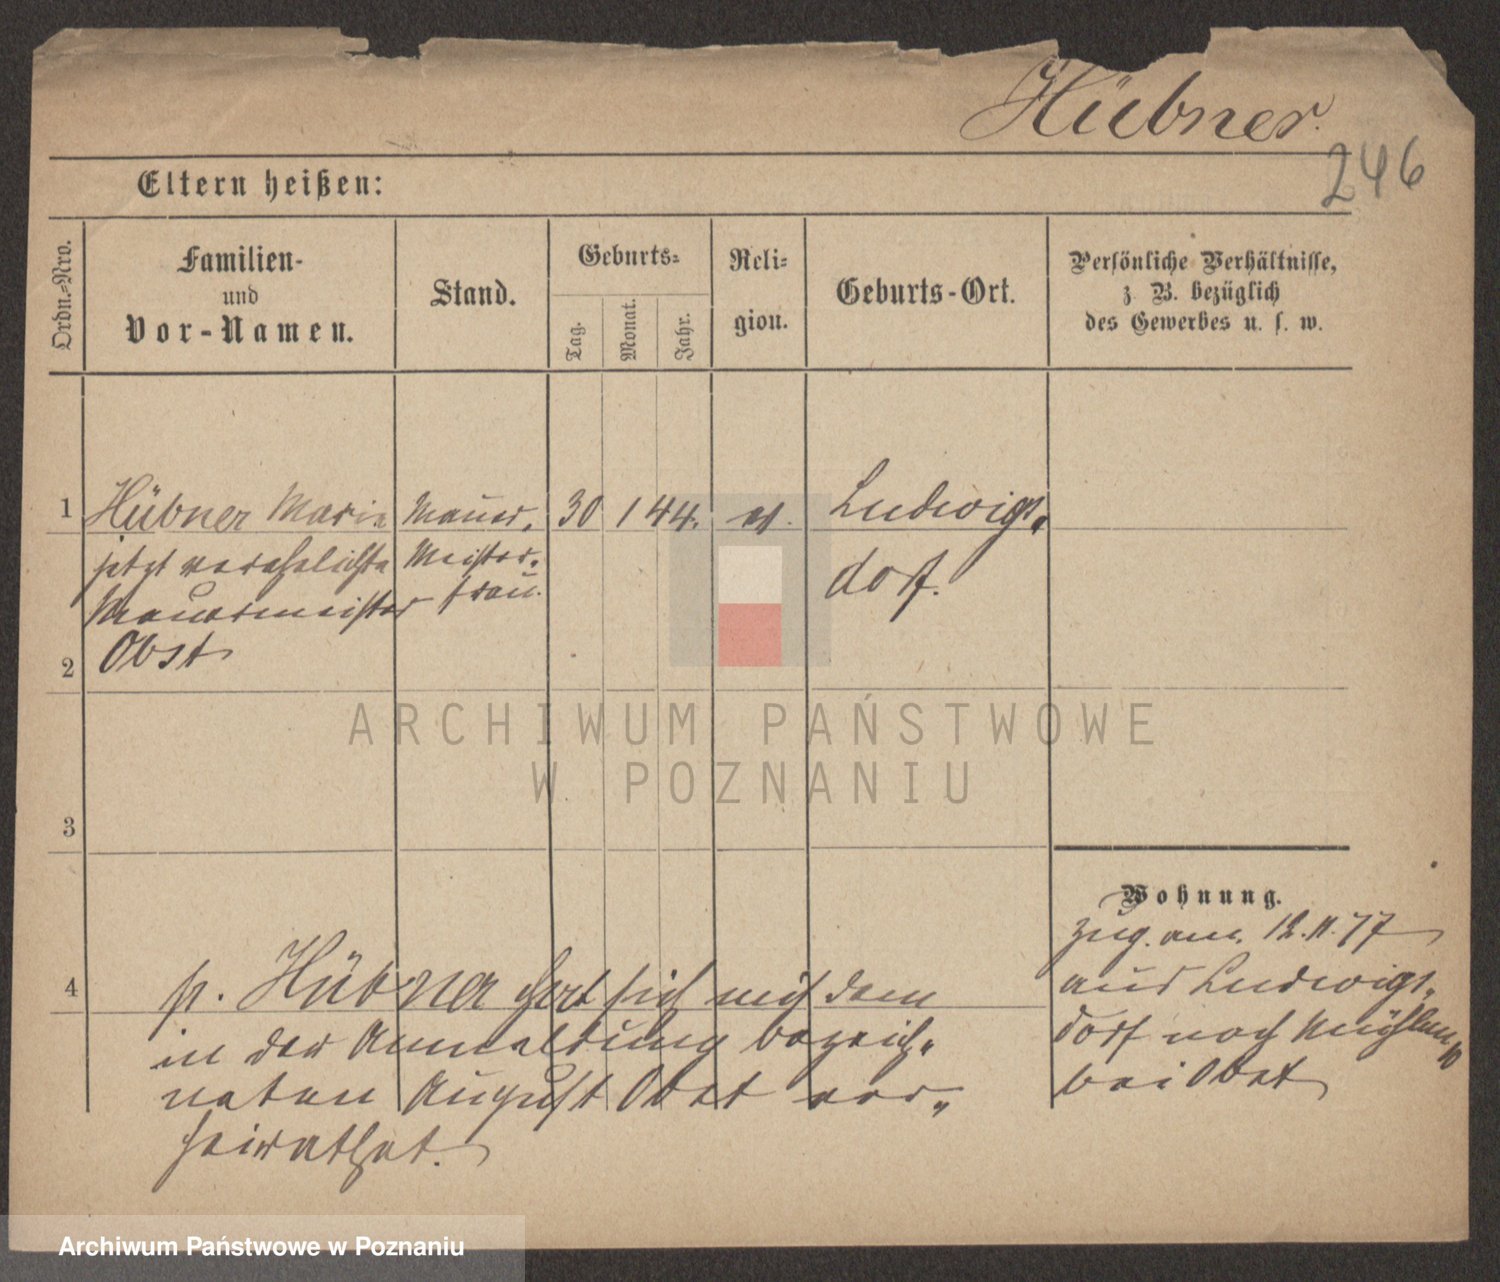 Hübner.
246
Eltern heißen:
Ordn.-Nro.
Familien-
und
Vor-Namen.
Stand.
Geburts-
Tag.
Monat.
Jahr.
Reli-
gion.
Geburts-Ort.
Persönliche Verhältnisse,
z. B. bezüglich
des Gewerbes u. s. w.
1 Hübner Marie Maurer- 30 1 44. ev. Ludwigs-
jetzt verehelichte Meister- dorf.
Maurermeister frau.
2 Obst
3
Wohnung.
Zug. am 12.11.77
aus Ludwigs-
dorf nach Mühlen
bei Obst
4 p. Hübner hat sich mit dem
in der Anmeldung bezeich-
neten August Obst ver-
heirathet.
ARCHIWUM PAŃSTWOWE
W POZNANIU
Archiwum Państwowe w Poznaniu